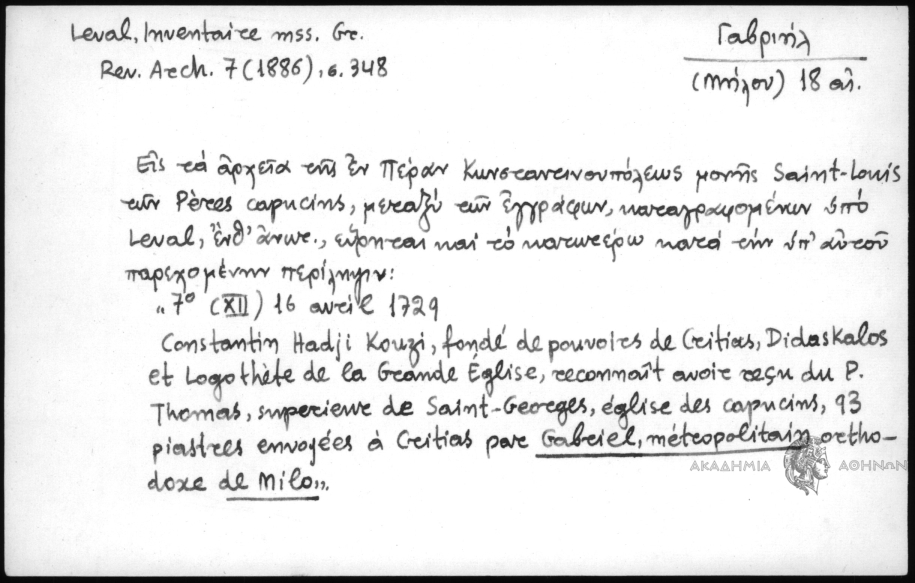 Leval, Inventaire mss. Gr.
Rev. Arch. 7 (1886), σ. 348
Γαβριήλ
(Μήλου) 18 αἰ.
Εἰς τά ἀρχεῖα τῆς ἐν Πέραν Κωνσταντινουπόλεως μονῆς Saint-Louis
τῶν Pères capucins, μεταξύ τῶν ἐγγράφων, καταγραφομένων ὑπό
Leval, ἔνθ' ἄνωτ., εὕρηται καί τό κατωτέρω κατά τήν ὑπ' αὐτοῦ
παρεχομένην περίληψιν:
„7º (XII) 16 avril 1729
Constantin Hadji Kouzi, fondé de pouvoirs de Critias, Didaskalos
et Logothète de la Grande Église, reconnaît avoir reçu du P.
Thomas, superieur de Saint-Georges, église des capucins, 93
piastres envoyées à Critias par Gabriel, métropolitain ortho-
doxe de Milo„.
ΑΚΑΔΗΜΙΑ ΑΘΗΝΩΝ